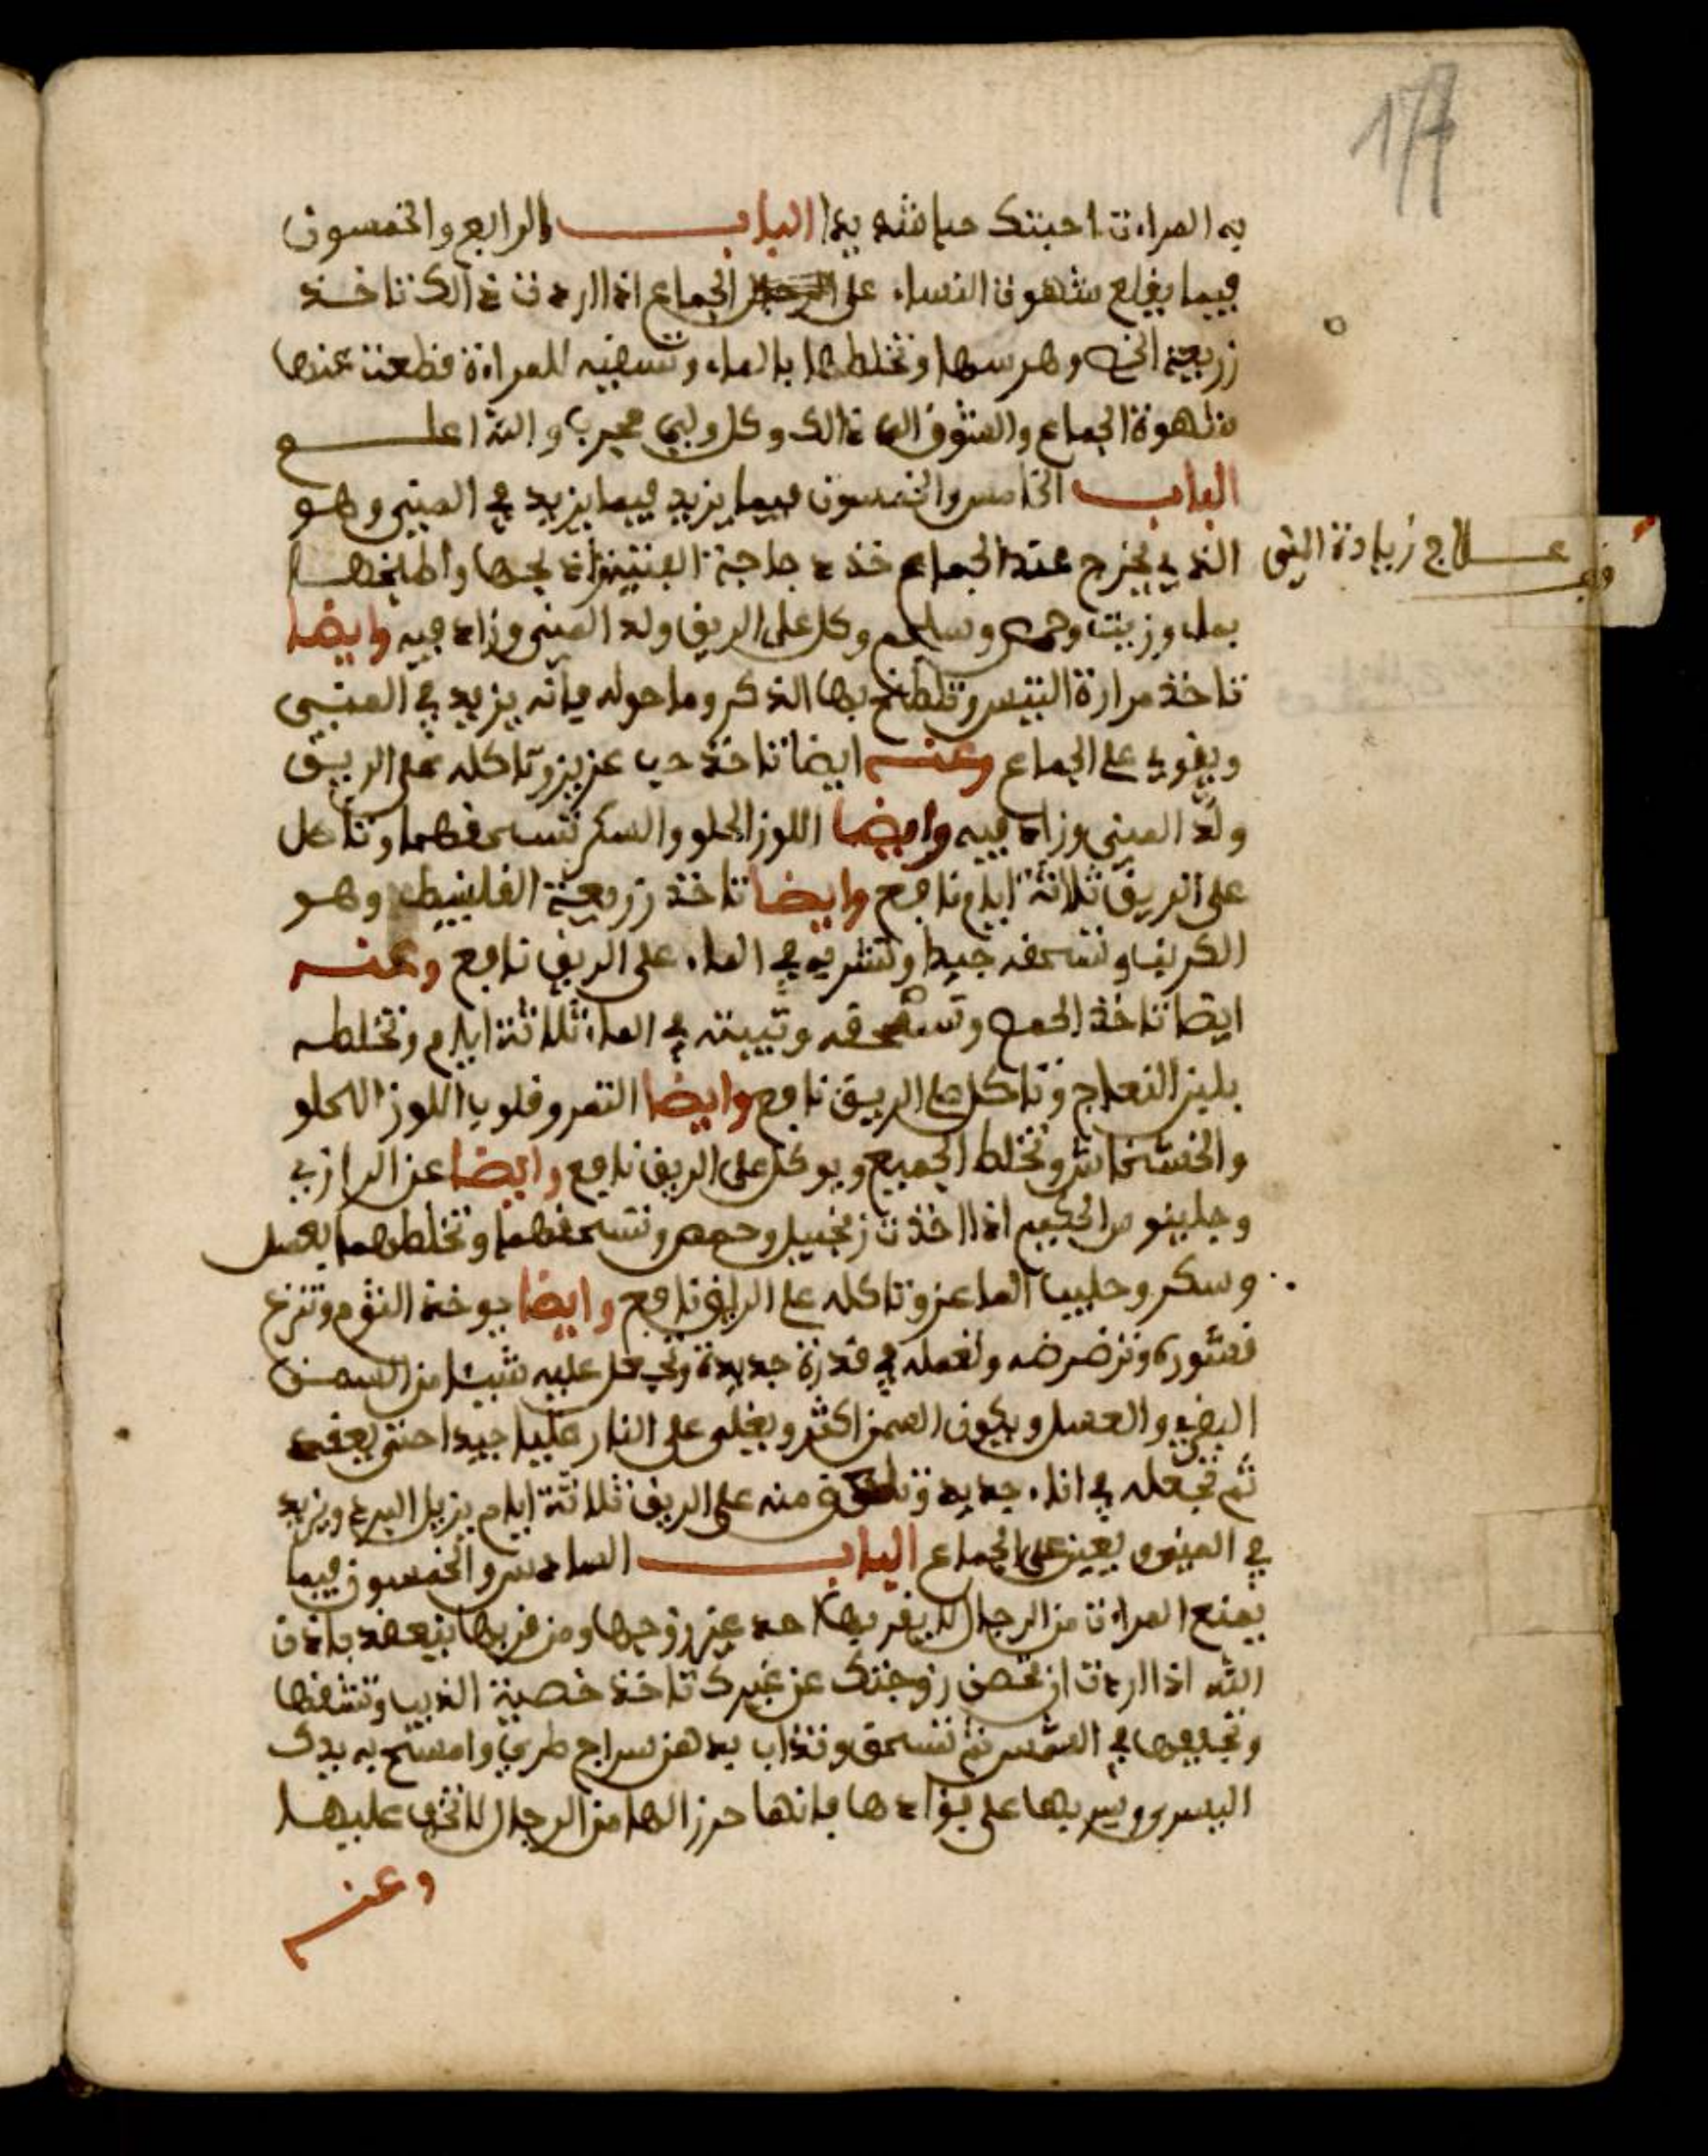 177
به المراءت احبتك حبا شديدا الباب الرابع والخمسون
فيما يقطع شهوت النساء على الجماع اذا اردت ذالك تاخذ
زريعة الخس وهرسها وتخلطها بالماء وتسقيه للمراءة قطعت عنها
شهوة الجماع والشوق الى ذالك وكل ولبي مجرب والله اعلم
الباب الخامس والخمسون فيما يزيد فيما يزيد في المني وهو
علاج زيادة المني
الذي يخرج عند الجماع خذ دجاجة اذبحها واطبخها
بماء وزيت وحمص وكل على الريق ولد المني وزاد فيه وايضا
تاخذ مرارة التيس وتلطخ بها الذكر وما حوله فانه يزيد في المني
ويقوي على الجماع وعنه ايضا تاخذ حب عزيز وتاكله على الريق
ولد المني وزاد فيه وايضا اللوز الحلو والسكر تسحقهما وتاكل
على الريق ثلاثة ايام نافع وايضا تاخذ زريعة القلنيط وهو
الكرنب وتسحقه جيدا وتشربه في الماء على الريق نافع وعنه
ايضا تاخذ الحمص وتسحقه وتبيته في الماء ثلاثة ايام وتخلطه
بلبن النعاج وتاكل على الريق نافع وايضا التمر وقلوب اللوز الحلو
والخشخاش وتخلط الجميع ويوكل على الريق نافع وايضا عن الرازي
وجلينوس الحكيم اذا اخذت زنجبيل وحمص وتسحقهما وتخلطهما بعسل
وسكر وحليب الماعز وتاكله على الريق نافع وايضا يوخذ الثوم وتنزع
قشوره وترضرضه وتعمله في قدرة جديدة وتجعل عليه شيئا من السمن
البقري والعسل ويكون السمن اكثر ويغلى على النار غليا جيدا حتى يعقد
ثم تجعله في اناء جديد وتلعق منه على الريق ثلاثة ايام يزيل البرد ويزيد
في المني ويعين على الجماع الباب السادس والخمسون فيما
يمنع المراءت من الرجال لا يقربها احد غير زوجها ومن قربها ينعقد باذن
الله اذا اردت ان تحصن زوجتك عن غيرك تاخذ خصية الذيب وتشقها
وتجففها في الشمس ثم تسحق وتذاب بدهن سراج طري وامسح به يدك
اليسرى وسر بها على فؤادها فانها حرز لها من الرجال لا تخف عليها
وعنه